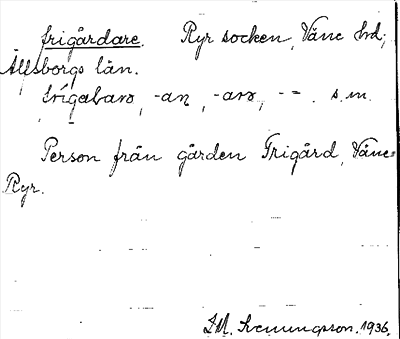 frigårdare. Ryr socken, Väne hd;
Älfsborgs län.
-an, -arə, - =. s.m.
Person från gården Frigård, Väne-
Ryr.
1936.